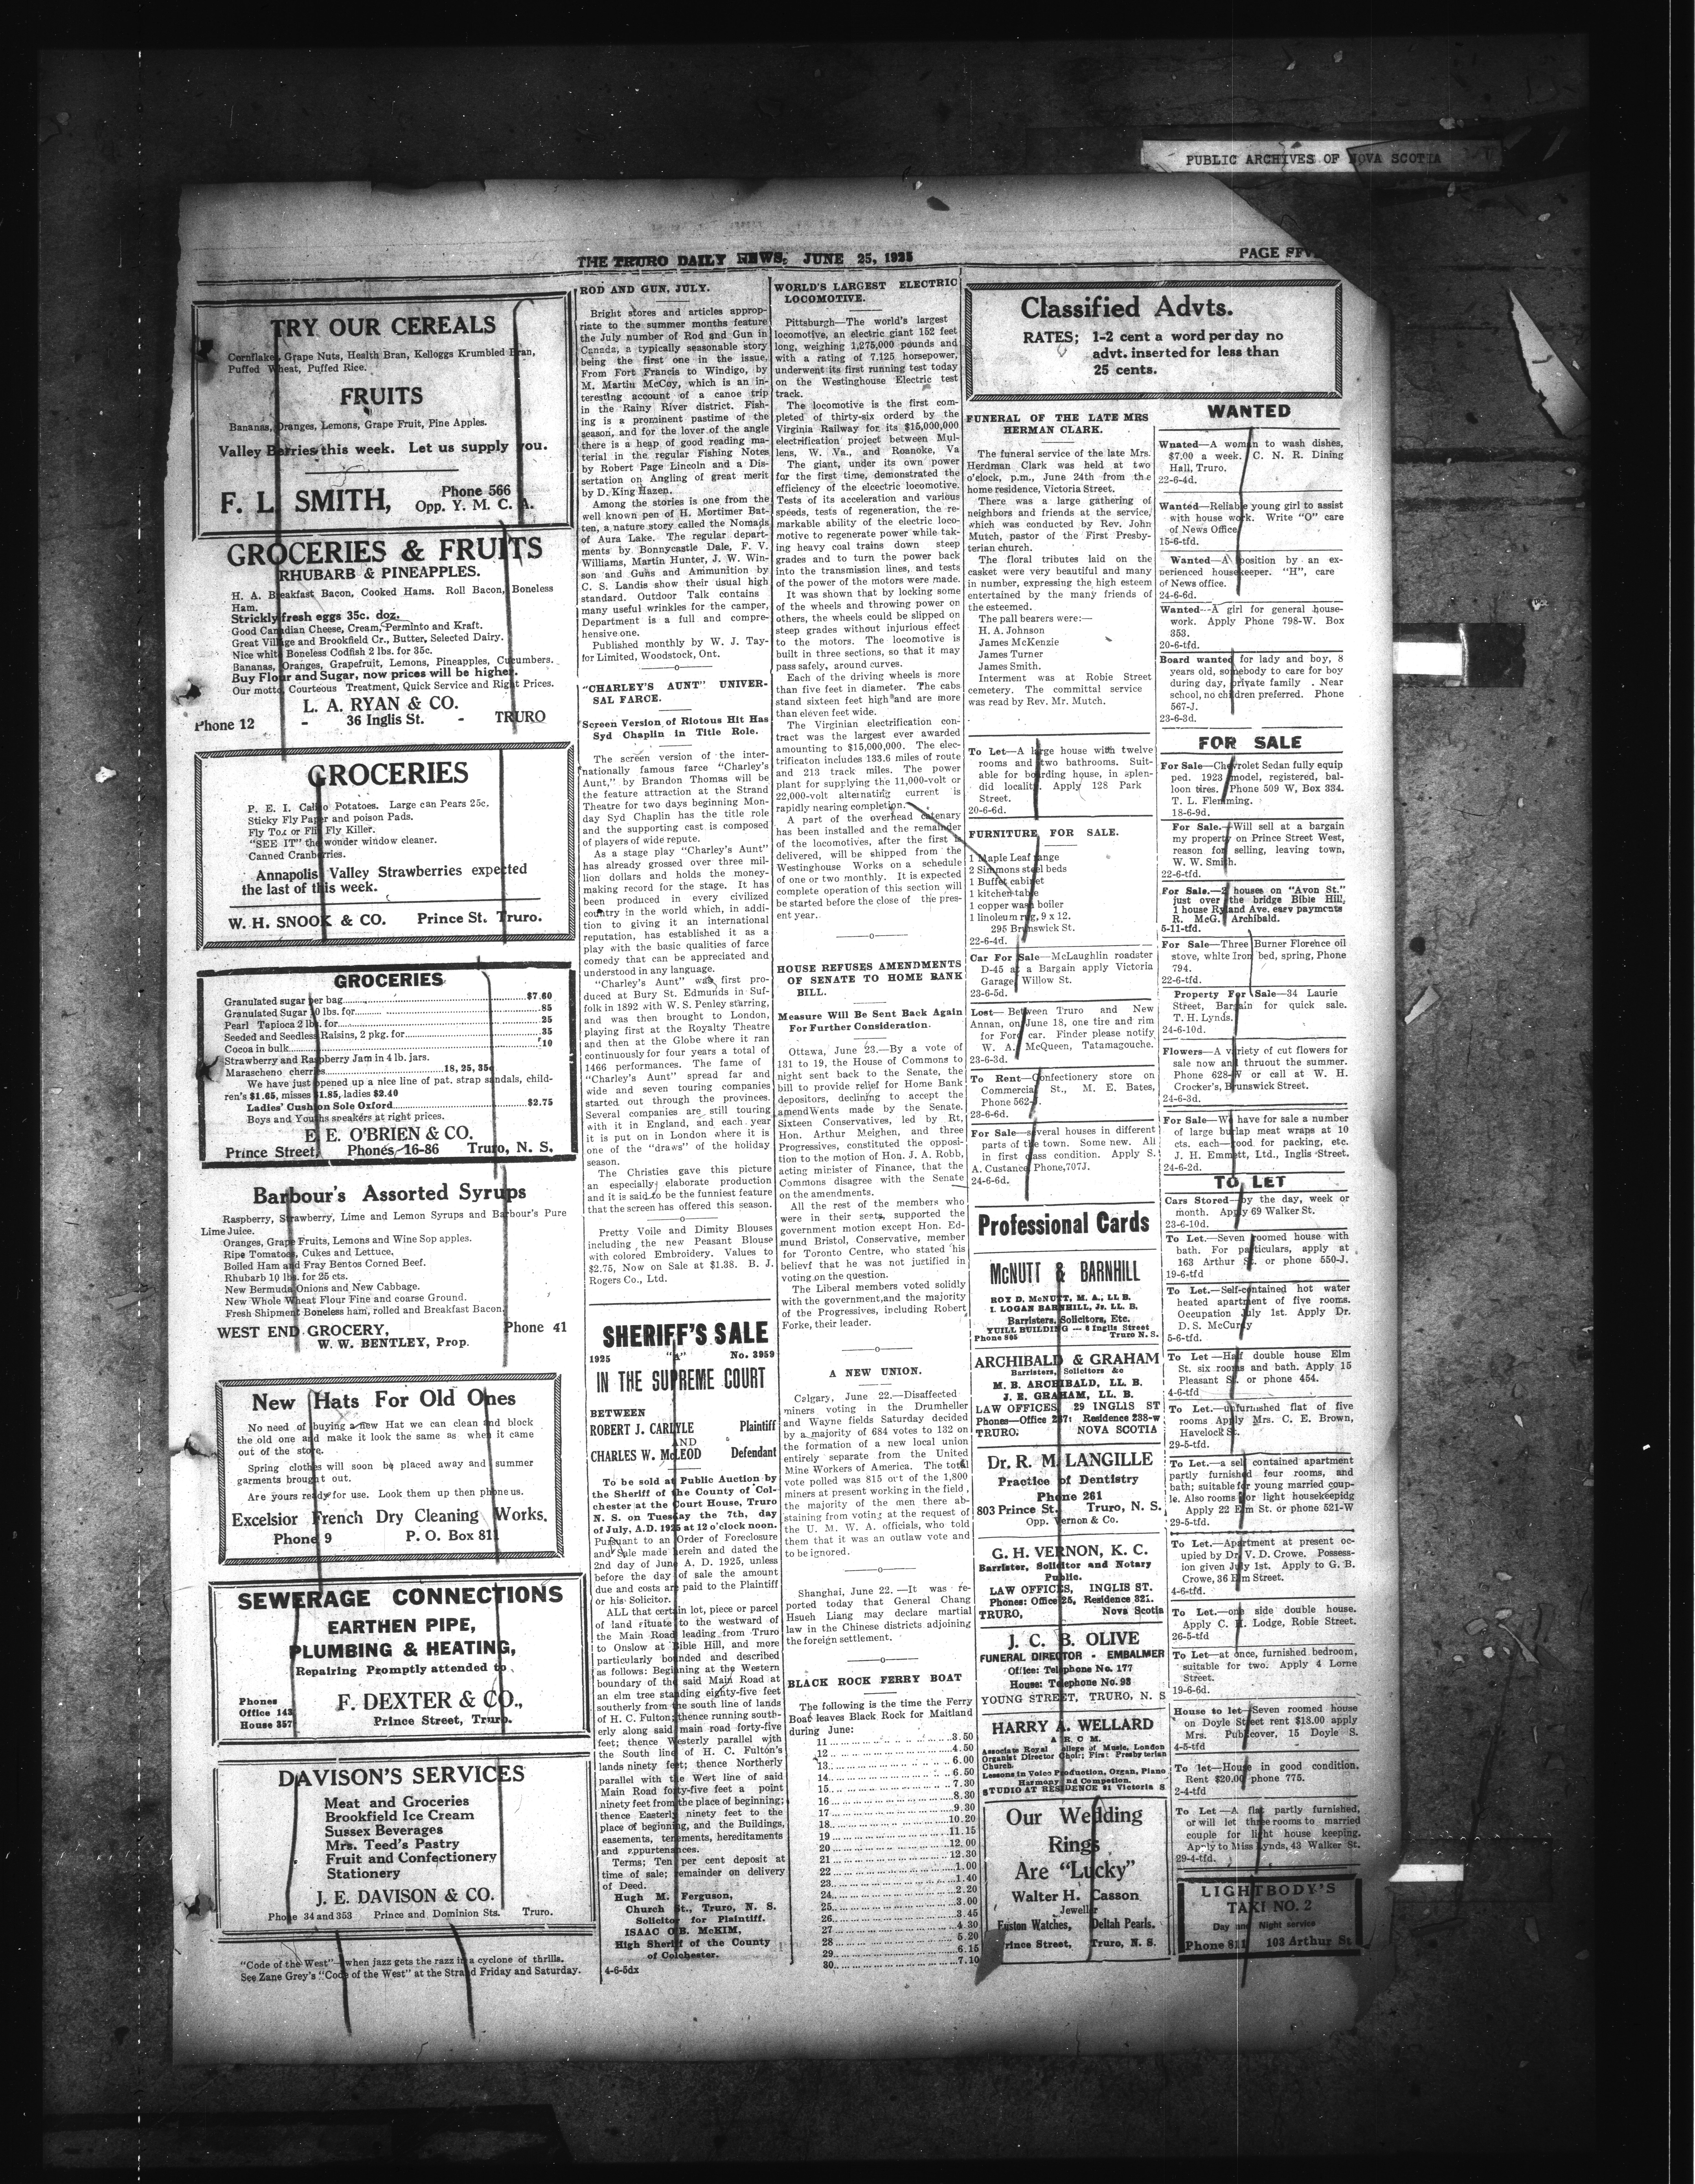 PUBLIC ARCHIVES OF NOVA SCOTIA
THE TRURO DAILY NEWS, JUNE 25, 1925
PAGE
TRY OUR CEREALS
Cornflakes, Grape Nuts, Health Bran, Kelloggs Krumbled Bran,
Puffed Wheat, Puffed Rice.
FRUITS
Bananas, Oranges, Lemons, Grape Fruit, Pine Apples.
Valley Berries this week. Let us supply you.
F. L. SMITH,
Phone 566
Opp. Y. M. C. A.
GROCERIES & FRUITS
RHUBARB & PINEAPPLES.
H. A. Breakfast Bacon, Cooked Hams. Roll Bacon, Boneless
Ham.
Strickly fresh eggs 35c. doz.
Good Canadian Cheese, Cream, Perminto and Kraft.
Great Village and Brookfield Cr., Butter, Selected Dairy.
Nice white Boneless Codfish 2 lbs. for 35c.
Bananas, Oranges, Grapefruit, Lemons, Pineapples, Cucumbers.
Buy Flour and Sugar, now prices will be higher.
Our motto, Courteous Treatment, Quick Service and Right Prices.
L. A. RYAN & CO.
Phone 12 - 36 Inglis St. - TRURO
GROCERIES
P. E. I. Calico Potatoes. Large can Pears 25c.
Sticky Fly Paper and poison Pads.
Fly Tox or Flit Fly Killer.
"SEE IT" the wonder window cleaner.
Canned Cranberries.
Annapolis Valley Strawberries expected
the last of this week.
W. H. SNOOK & CO. Prince St. Truro.
GROCERIES
Granulated sugar per bag $7.60
Granulated Sugar 10 lbs. for .85
Pearl Tapioca 2 lbs. for .25
Seeded and Seedless Raisins, 2 pkg. for .35
Cocoa in bulk .10
Strawberry and Raspberry Jam in 4 lb. jars.
Marascheno cherries 18, 25, 35c
We have just opened up a nice line of pat. strap sandals, child-
ren's $1.65, misses $1.85, ladies $2.40
Ladies' Cushion Sole Oxford $2.75
Boys and Youths sneakers at right prices.
E. E. O'BRIEN & CO.
Prince Street, Phones 16-86 Truro, N. S.
Barbour's Assorted Syrups
Raspberry, Strawberry, Lime and Lemon Syrups and Barbour's Pure
Lime Juice.
Oranges, Grape Fruits, Lemons and Wine Sop apples.
Ripe Tomatoes, Cukes and Lettuce,
Boiled Ham and Fray Bentos Corned Beef.
Rhubarb 10 lbs. for 25 cts.
New Bermuda Onions and New Cabbage.
New Whole Wheat Flour Fine and coarse Ground.
Fresh Shipment Boneless ham, rolled and Breakfast Bacon.
WEST END GROCERY, Phone 41
W. W. BENTLEY, Prop.
New Hats For Old Ones
No need of buying a new Hat we can clean and block
the old one and make it look the same as when it came
out of the store.
Spring clothes will soon be placed away and summer
garments brought out.
Are yours ready for use. Look them up then phone us.
Excelsior French Dry Cleaning Works.
Phone 9 P. O. Box 811
SEWERAGE CONNECTIONS
EARTHEN PIPE,
PLUMBING & HEATING,
Repairing Promptly attended to
Phones
Office 143
House 357
F. DEXTER & CO.,
Prince Street, Truro.
DAVISON'S SERVICES
Meat and Groceries
Brookfield Ice Cream
Sussex Beverages
Mrs. Teed's Pastry
Fruit and Confectionery
Stationery
J. E. DAVISON & CO.
Phone 34 and 353 Prince and Dominion Sts. Truro.
"Code of the West"—when jazz gets the razz in a cyclone of thrills.
See Zane Grey's "Code of the West" at the Strand Friday and Saturday.
ROD AND GUN, JULY.
Bright stores and articles approp-
riate to the summer months feature
the July number of Rod and Gun in
Canada, a typically seasonable story
being the first one in the issue,
From Fort Francis to Windigo, by
M. Martin McCoy, which is an in-
teresting account of a canoe trip
in the Rainy River district. Fish-
ing is a prominent pastime of the
season, and for the lover of the angle
there is a heap of good reading ma-
terial in the regular Fishing Notes
by Robert Page Lincoln and a Dis-
sertation on Angling of great merit
by D. King Hazen.
Among the stories is one from the
well known pen of H. Mortimer Bat-
ten, a nature story called the Nomads
of Aura Lake. The regular depart-
ments by Bonnycastle Dale, F. V.
Williams, Martin Hunter, J. W. Win-
son and Guns and Ammunition by
C. S. Landis show their usual high
standard. Outdoor Talk contains
many useful wrinkles for the camper,
Department is a full and compre-
hensive one.
Published monthly by W. J. Tay-
lor Limited, Woodstock, Ont.
"CHARLEY'S AUNT" UNIVER-
SAL FARCE.
Screen Version of Riotous Hit Has
Syd Chaplin in Title Role.
The screen version of the inter-
nationally famous farce "Charley's
Aunt," by Brandon Thomas will be
the feature attraction at the Strand
Theatre for two days beginning Mon-
day Syd Chaplin has the title role
and the supporting cast is composed
of players of wide repute.
As a stage play "Charley's Aunt"
has already grossed over three mil-
lion dollars and holds the money-
making record for the stage. It has
been produced in every civilized
country in the world which, in addi-
tion to giving it an international
reputation, has established it as a
play with the basic qualities of farce
comedy that can be appreciated and
understood in any language.
"Charley's Aunt" was first pro-
duced at Bury St. Edmunds in Suf-
folk in 1892 with W. S. Penley starring,
and was then brought to London,
playing first at the Royalty Theatre
and then at the Globe where it ran
continuously for four years a total of
1466 performances. The fame of
"Charley's Aunt" spread far and
wide and seven touring companies
started out through the provinces.
Several companies are still touring
with it in England, and each year
it is put on in London where it is
one of the "draws" of the holiday
season.
The Christies gave this picture
an especially elaborate production
and it is said to be the funniest feature
that the screen has offered this season.
Pretty Voile and Dimity Blouses
including the new Peasant Blouse
with colored Embroidery. Values to
$2.75, Now on Sale at $1.38. B. J.
Rogers Co., Ltd.
SHERIFF'S SALE
1925 "A" No. 3959
IN THE SUPREME COURT
BETWEEN
ROBERT J. CARLYLE Plaintiff
AND
CHARLES W. McLEOD Defendant
To be sold at Public Auction by
the Sheriff of the County of Col-
chester at the Court House, Truro
N. S. on Tuesday the 7th, day
of July, A.D. 1925 at 12 o'clock noon.
Pursuant to an Order of Foreclosure
and Sale made herein and dated the
2nd day of June A. D. 1925, unless
before the day of sale the amount
due and costs are paid to the Plaintiff
or his Solicitor.
ALL that certain lot, piece or parcel
of land situate to the westward of
the Main Road leading from Truro
to Onslow at Bible Hill, and more
particularly bounded and described
as follows: Beginning at the Western
boundary of the said Main Road at
an elm tree standing eighty-five feet
southerly from the south line of lands
of H. C. Fulton; thence running south-
erly along said main road forty-five
feet; thence Westerly parallel with
the South line of H. C. Fulton's
lands ninety feet; thence Northerly
parallel with the West line of said
Main Road forty-five feet a point
ninety feet from the place of beginning;
thence Easterly ninety feet to the
place of beginning, and the Buildings,
easements, tenements, hereditaments
and appurtenances.
Terms; Ten per cent deposit at
time of sale; remainder on delivery
of Deed.
Hugh M. Ferguson,
Church St., Truro, N. S.
Solicitor for Plaintiff.
ISAAC O.B. McKIM,
High Sheriff of the County
of Colchester.
4-6-5dx
WORLD'S LARGEST ELECTRIC
LOCOMOTIVE.
Pittsburgh—The world's largest
locomotive, an electric giant 152 feet
long, weighing 1,275,000 pounds and
with a rating of 7.125 horsepower,
underwent its first running test today
on the Westinghouse Electric test
track.
The locomotive is the first com-
pleted of thirty-six orderd by the
Virginia Railway for its $15,000,000
electrification project between Mul-
lens, W. Va., and Roanoke, Va
The giant, under its own power
for the first time, demonstrated the
efficiency of the electric locomotive.
Tests of its acceleration and various
speeds, tests of regeneration, the re-
markable ability of the electric loco-
motive to regenerate power while tak-
ing heavy coal trains down steep
grades and to turn the power back
into the transmission lines, and tests
of the power of the motors were made.
It was shown that by locking some
of the wheels and throwing power on
others, the wheels could be slipped on
steep grades without injurious effect
to the motors. The locomotive is
built in three sections, so that it may
pass safely, around curves.
Each of the driving wheels is more
than five feet in diameter. The cabs
stand sixteen feet high and are more
than eleven feet wide.
The Virginian electrification con-
tract was the largest ever awarded
amounting to $15,000,000. The elec-
trificaton includes 133.6 miles of route
and 213 track miles. The power
plant for supplying the 11,000-volt or
22,000-volt alternating current is
rapidly nearing completion.
A part of the overhead catenary
has been installed and the remainder
of the locomotives, after the first is
delivered, will be shipped from the
Westinghouse Works on a schedule
of one or two monthly. It is expected
complete operation of this section will
be started before the close of the pres-
ent year.
HOUSE REFUSES AMENDMENTS
OF SENATE TO HOME BANK
BILL.
Measure Will Be Sent Back Again
For Further Consideration.
Ottawa, June 23.—By a vote of
131 to 19, the House of Commons to
night sent back to the Senate, the
bill to provide relief for Home Bank
depositors, declining to accept the
amendWents made by the Senate.
Sixteen Conservatives, led by Rt.
Hon. Arthur Meighen, and three
Progressives, constituted the opposi-
tion to the motion of Hon. J. A. Robb,
acting minister of Finance, that the
Commons disagree with the Senate
on the amendments.
All the rest of the members who
were in their seats, supported the
government motion except Hon. Ed-
mund Bristol, Conservative, member
for Toronto Centre, who stated his
believf that he was not justified in
voting on the question.
The Liberal members voted solidly
with the government, and the majority
of the Progressives, including Robert
Forke, their leader.
A NEW UNION.
Calgary, June 22.—Disaffected
miners voting in the Drumheller
and Wayne fields Saturday decided
by a majority of 684 votes to 132 on
the formation of a new local union
entirely separate from the United
Mine Workers of America. The total
vote polled was 815 out of the 1,800
miners at present working in the field,
the majority of the men there ab-
staining from voting at the request of
the U. M. W. A. officials, who told
them that it was an outlaw vote and
to be ignored.
Shanghai, June 22. —It was re-
ported today that General Chang
Hsueh Liang may declare martial
law in the Chinese districts adjoining
the foreign settlement.
BLACK ROCK FERRY BOAT
The following is the time the Ferry
Boat leaves Black Rock for Maitland
during June:
11 3.50
12 4.50
13 6.00
14 6.50
15 7.30
16 8.30
17 9.30
18 10.20
19 11.15
20 12.00
21 12.30
22 1.00
23 1.40
24 2.20
25 3.00
26 3.45
27 4.30
28 5.20
29 6.15
30 7.10
Classified Advts.
RATES; 1-2 cent a word per day no
advt. inserted for less than
25 cents.
FUNERAL OF THE LATE MRS
HERMAN CLARK.
The funeral service of the late Mrs.
Herdman Clark was held at two
o'clock, p.m., June 24th from the
home residence, Victoria Street.
There was a large gathering of
neighbors and friends at the service,
which was conducted by Rev. John
Mutch, pastor of the First Presby-
terian church.
The floral tributes laid on the
casket were very beautiful and many
in number, expressing the high esteem
entertained by the many friends of
the esteemed.
The pall bearers were:—
H. A. Johnson
James McKenzie
James Turner
James Smith.
Interment was at Robie Street
cemetery. The committal service
was read by Rev. Mr. Mutch.
To Let—A large house with twelve
rooms and two bathrooms. Suit-
able for boarding house, in splen-
did locality. Apply 128 Park
Street.
20-6-6d.
FURNITURE FOR SALE.
1 Maple Leaf range
2 Simmons steel beds
1 Buffet cabinet
1 kitchen table
1 copper wash boiler
1 linoleum rug, 9 x 12.
295 Brunswick St.
22-6-4d.
Car For Sale—McLaughlin roadster
D-45 at a Bargain apply Victoria
Garage, Willow St.
23-6-5d.
Lost— Between Truro and New
Annan, on June 18, one tire and rim
for Ford car. Finder please notify
W. A. McQueen, Tatamagouche.
23-6-3d.
To Rent—Confectionery store on
Commercial St., M. E. Bates,
Phone 562-J.
23-6-6d.
For Sale—several houses in different
parts of the town. Some new. All
in first class condition. Apply S.
A. Custance, Phone, 707J.
24-6-6d.
Professional Cards
McNUTT & BARNHILL
ROY D. McNUTT, M. A., LL B.
I. LOGAN BARNHILL, Jr. LL. B.
Barristers, Solicitors, Etc.
YUILL BUILDING --- 8 Inglis Street
Phone 805 Truro N. S.
ARCHIBALD & GRAHAM
Barristers, Solicitors &c
M. B. ARCHIBALD, LL. B.
J. E. GRAHAM, LL. B.
LAW OFFICES 29 INGLIS ST
Phones—Office 237: Residence 238-w
TRURO; NOVA SCOTIA
Dr. R. M. LANGILLE
Practice of Dentistry
Phone 261
803 Prince St. Truro, N. S.
Opp. Vernon & Co.
G. H. VERNON, K. C.
Barrister, Solicitor and Notary
Public.
LAW OFFICES, INGLIS ST.
Phones: Office 25, Residence 321.
TRURO, Nova Scotia
J. C. B. OLIVE
FUNERAL DIRECTOR - EMBALMER
Office: Telephone No. 177
House: Telephone No. 98
YOUNG STREET, TRURO, N. S
HARRY A. WELLARD
A. R. C. M.
Associate Royal College of Music, London
Organist Director Choir; First Presbyterian
Church.
Lessons in Voice Production, Organ, Piano
Harmony and Competion.
STUDIO AT RESIDENCE 81 Victoria S
Our Wedding
Rings
Are "Lucky"
Walter H. Casson
Jeweller
Fuston Watches, Deltah Pearls.
Prince Street, Truro, N. S.
WANTED
Wnated—A woman to wash dishes,
$7.00 a week. C. N. R. Dining
Hall, Truro.
22-6-4d.
Wanted—Reliable young girl to assist
with house work. Write "O" care
of News Office.
15-6-tfd.
Wanted—A position by an ex-
perienced housekeeper. "H", care
of News office.
24-6-6d.
Wanted—A girl for general house-
work. Apply Phone 798-W. Box
353.
20-6-tfd.
Board wanted for lady and boy, 8
years old, somebody to care for boy
during day, private family . Near
school, no children preferred. Phone
567-J.
23-6-3d.
FOR SALE
For Sale—Chevrolet Sedan fully equip
ped. 1923 model, registered, bal-
loon tires. Phone 509 W, Box 334.
T. L. Flemming.
18-6-9d.
For Sale.—Will sell at a bargain
my property on Prince Street West,
reason for selling, leaving town,
W. W. Smith.
22-6-tfd.
For Sale.—2 houses on "Avon St."
just over the bridge Bible Hill,
1 house Ryland Ave. easy payments
R. McG. Archibald.
5-11-tfd.
For Sale—Three Burner Florence oil
stove, white Iron bed, spring, Phone
794.
22-6-tfd.
Property For Sale—34 Laurie
Street, Bargain for quick sale.
T. H. Lynds.
24-6-10d.
Flowers—A variety of cut flowers for
sale now and thruout the summer.
Phone 628-W or call at W. H.
Crocker's, Brunswick Street.
24-6-3d.
For Sale—We have for sale a number
of large burlap meat wraps at 10
cts. each—good for packing, etc.
J. H. Emmett, Ltd., Inglis Street.
24-6-2d.
TO LET
Cars Stored—by the day, week or
month. Apply 69 Walker St.
23-6-10d.
To Let.—Seven roomed house with
bath. For particulars, apply at
163 Arthur St. or phone 550-J.
19-6-tfd
To Let.—Self-contained hot water
heated apartment of five rooms.
Occupation July 1st. Apply Dr.
D. S. McCurdy
5-6-tfd.
To Let —Half double house Elm
St. six rooms and bath. Apply 15
Pleasant St. or phone 454.
4-6-tfd
To Let.—unfurnished flat of five
rooms Apply Mrs. C. E. Brown,
Havelock St.
29-5-tfd.
To Let.— a self contained apartment
partly furnished four rooms, and
bath; suitable for young married coup-
le. Also rooms for light housekeepidg
Apply 22 Elm St. or phone 521-W
29-5-tfd.
To Let.—Apartment at present oc-
cupied by Dr. V. D. Crowe. Possess-
ion given July 1st. Apply to G. B.
Crowe, 36 Elm Street.
4-6-tfd.
To Let.—one side double house.
Apply C. H. Lodge, Robie Street.
26-5-tfd
To Let—at once, furnished bedroom,
suitable for two. Apply 4 Lorne
Street.
19-6-6d.
House to let—Seven roomed house
on Doyle Street rent $18.00 apply
Mrs. Publicover, 15 Doyle S.
4-5-tfd
To let—House in good condition,
Rent $20.00 phone 775.
2-4-tfd
To Let —A flat partly furnished,
or will let three rooms to married
couple for light house keeping.
Apply to Miss Lynds, 43 Walker St.
29-4-tfd.
LIGHTBODY'S
TAXI NO. 2
Day and Night service
Phone 811 103 Arthur St